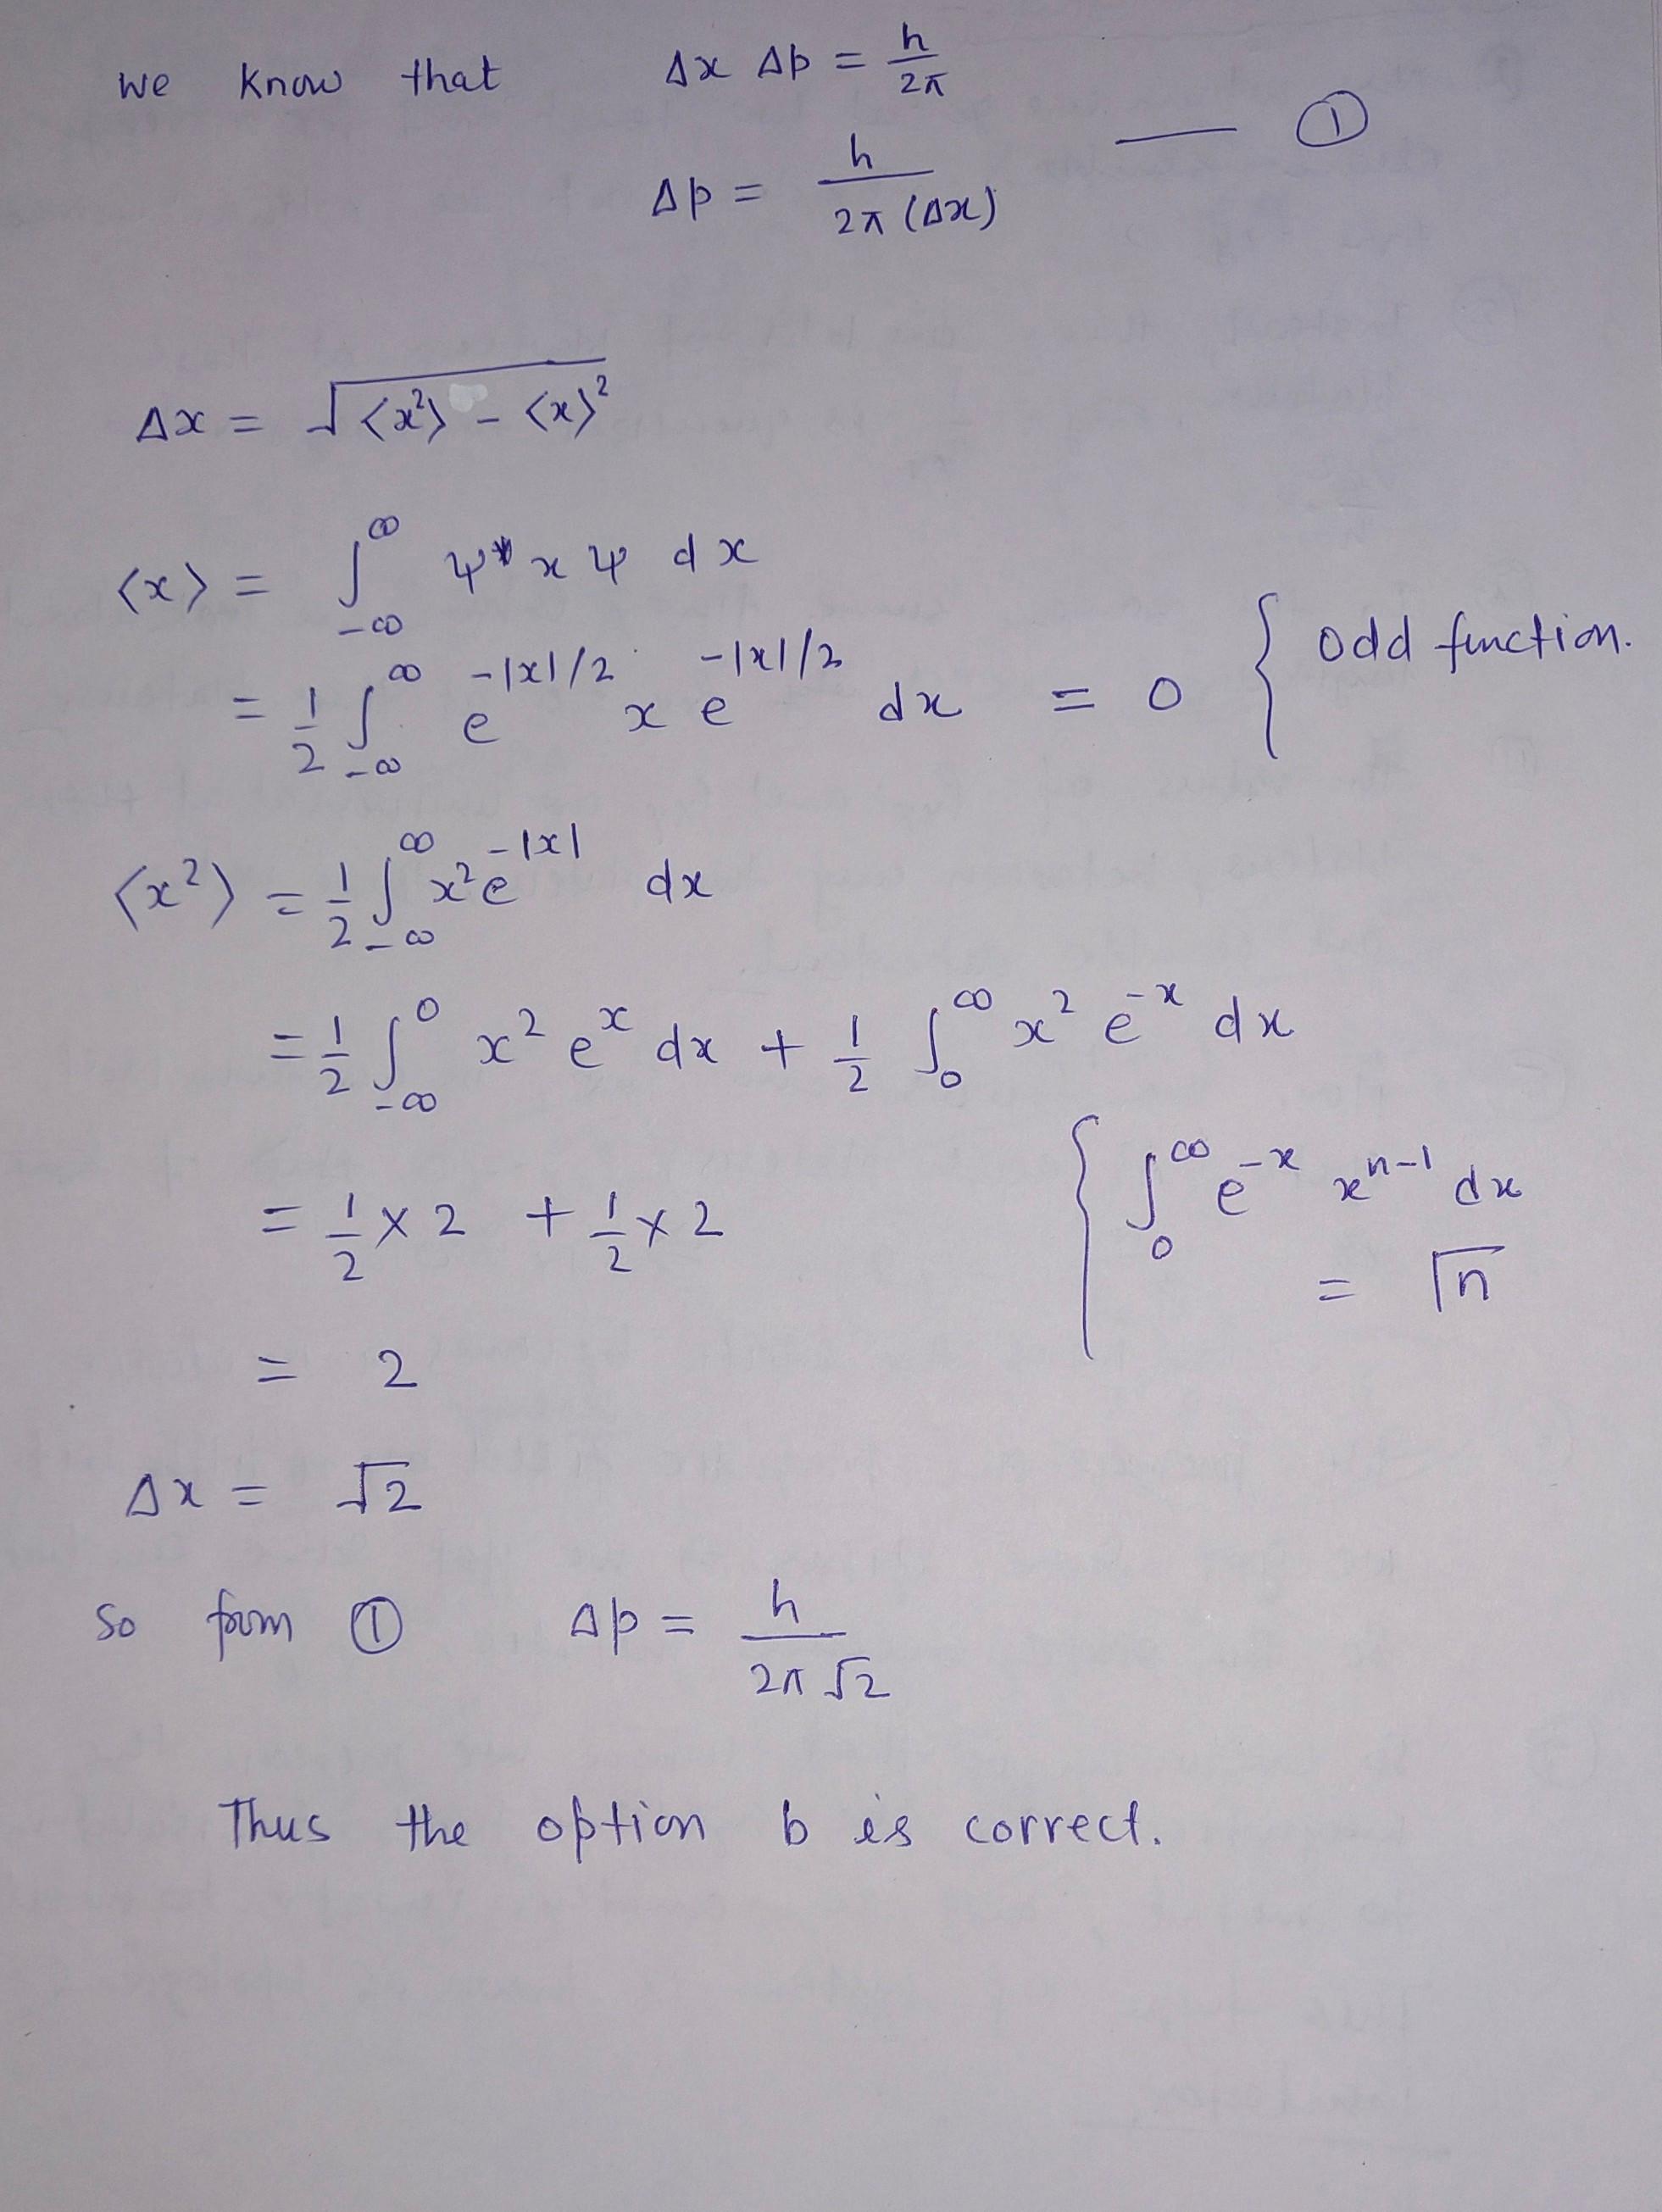 we know that Δx Δp = h/2π
Δp = h/2π(Δx) — ①
Δx = √(⟨x²⟩ - ⟨x⟩²)
⟨x⟩ = ∫_{-∞}^{∞} ψ* x ψ dx
= 1/2 ∫_{-∞}^{∞} e^{-|x|/2} x e^{-|x|/2} dx = 0 { odd function.
⟨x²⟩ = 1/2 ∫_{-∞}^{∞} x² e^{-|x|} dx
= 1/2 ∫_{-∞}^{0} x² e^{x} dx + 1/2 ∫_{0}^{∞} x² e^{-x} dx
= 1/2 × 2 + 1/2 × 2 { ∫_{0}^{∞} e^{-x} x^{n-1} dx
= Γn
= 2
Δx = √2
so from ① Δp = h/2π√2
Thus the option b is correct.